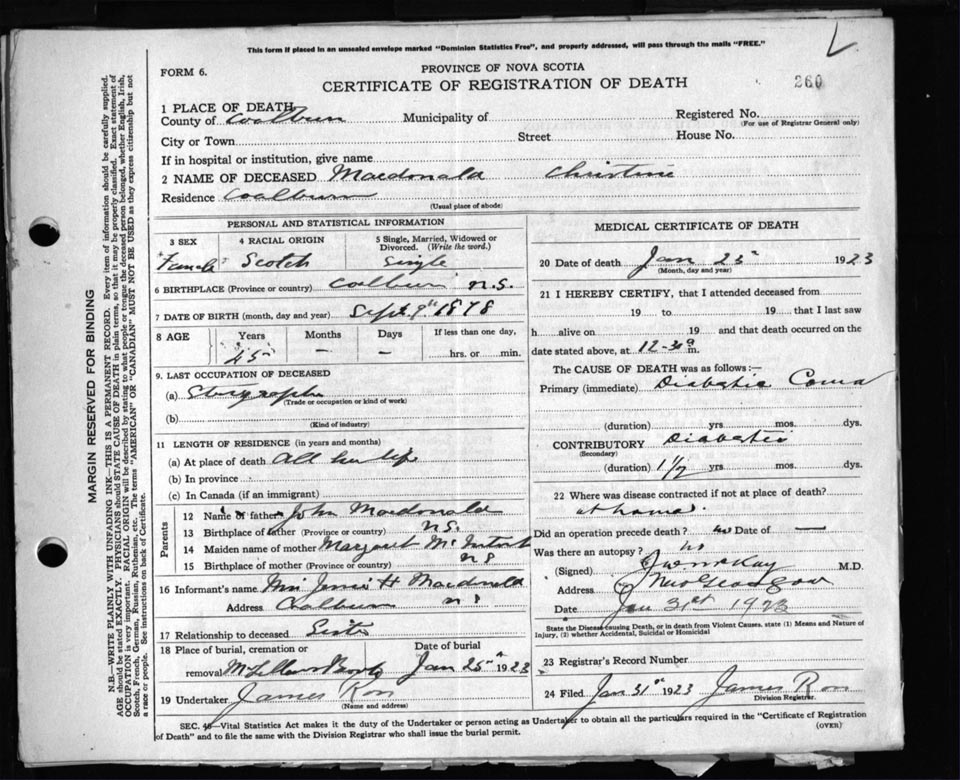 This form if placed in an unsealed envelope marked "Dominion Statistics Free", and properly addressed, will pass through the mails "FREE."
FORM 6.
PROVINCE OF NOVA SCOTIA
CERTIFICATE OF REGISTRATION OF DEATH
260
1 PLACE OF DEATH
County of Coalburn Municipality of Registered No.
(For use of Registrar General only)
City or Town Street House No.
If in hospital or institution, give name
2 NAME OF DECEASED Macdonald Christine
Residence Coalburn
(Usual place of abode)
PERSONAL AND STATISTICAL INFORMATION
3 SEX 4 RACIAL ORIGIN 5 Single, Married, Widowed or Divorced. (Write the word.)
Female Scotch Single
6 BIRTHPLACE (Province or country) Coalburn N.S.
7 DATE OF BIRTH (month, day and year) Sept. 9th 1878
8 AGE Years Months Days If less than one day,
45 – – hrs. or min.
9. LAST OCCUPATION OF DECEASED
(a) Stenographer
(Trade or occupation or kind of work)
(b)
(Kind of industry)
11 LENGTH OF RESIDENCE (in years and months)
(a) At place of death All her life
(b) In province
(c) In Canada (if an immigrant)
Parents
12 Name of father John Macdonald
13 Birthplace of father (Province or country) N.S.
14 Maiden name of mother Margaret McIntosh
15 Birthplace of mother (Province or country) NS
16 Informant's name Miss Jessie H Macdonald
Address Coalburn NS
17 Relationship to deceased Sister
18 Place of burial, cremation or removal Date of burial
Jan 25th 1923
19 Undertaker James Ross
(Name and address)
MEDICAL CERTIFICATE OF DEATH
20 Date of death Jan 23 1923
(Month, day and year)
21 I HEREBY CERTIFY, that I attended deceased from
19 to 19 that I last saw
h alive on 19 and that death occurred on
date stated above, at 12-30 a m.
The CAUSE OF DEATH was as follows:—
Primary (immediate) Diabetic Coma
(duration) yrs. mos. dys.
CONTRIBUTORY Diabetes
(Secondary)
(duration) 1½ yrs. mos. dys.
22 Where was disease contracted if not at place of death?
at home.
Did an operation precede death? no Date of —
Was there an autopsy? no
(Signed) M.D.
Address New Glasgow
Date Jan 31st 1923
State the Disease causing Death, or in death from Violent Causes, state (1) Means and Nature of Injury, (2) whether Accidental, Suicidal or Homicidal
23 Registrar's Record Number
24 Filed Jan 31st 1923 James Ross
Division Registrar.
SEC. 45—Vital Statistics Act makes it the duty of the Undertaker or person acting as Undertaker to obtain all the particulars required in the "Certificate of Registration of Death" and to file the same with the Division Registrar who shall issue the burial permit.
(OVER)
MARGIN RESERVED FOR BINDING
N.B.—WRITE PLAINLY WITH UNFADING INK—THIS IS A PERMANENT RECORD. Every item of information should be carefully supplied.
AGE should be stated EXACTLY. PHYSICIANS should STATE CAUSE OF DEATH in plain terms, so that it may be properly classified. Exact statement of
OCCUPATION is very important. RACIAL ORIGIN will be described by stating to what people or tongue the deceased person belonged, whether English, Irish,
Scotch, French, German, Russian, Ruthenian, etc. The terms "AMERICAN" OR "CANADIAN" MUST NOT BE USED as they express citizenship but not
a race or people. See instructions on back of Certificate.